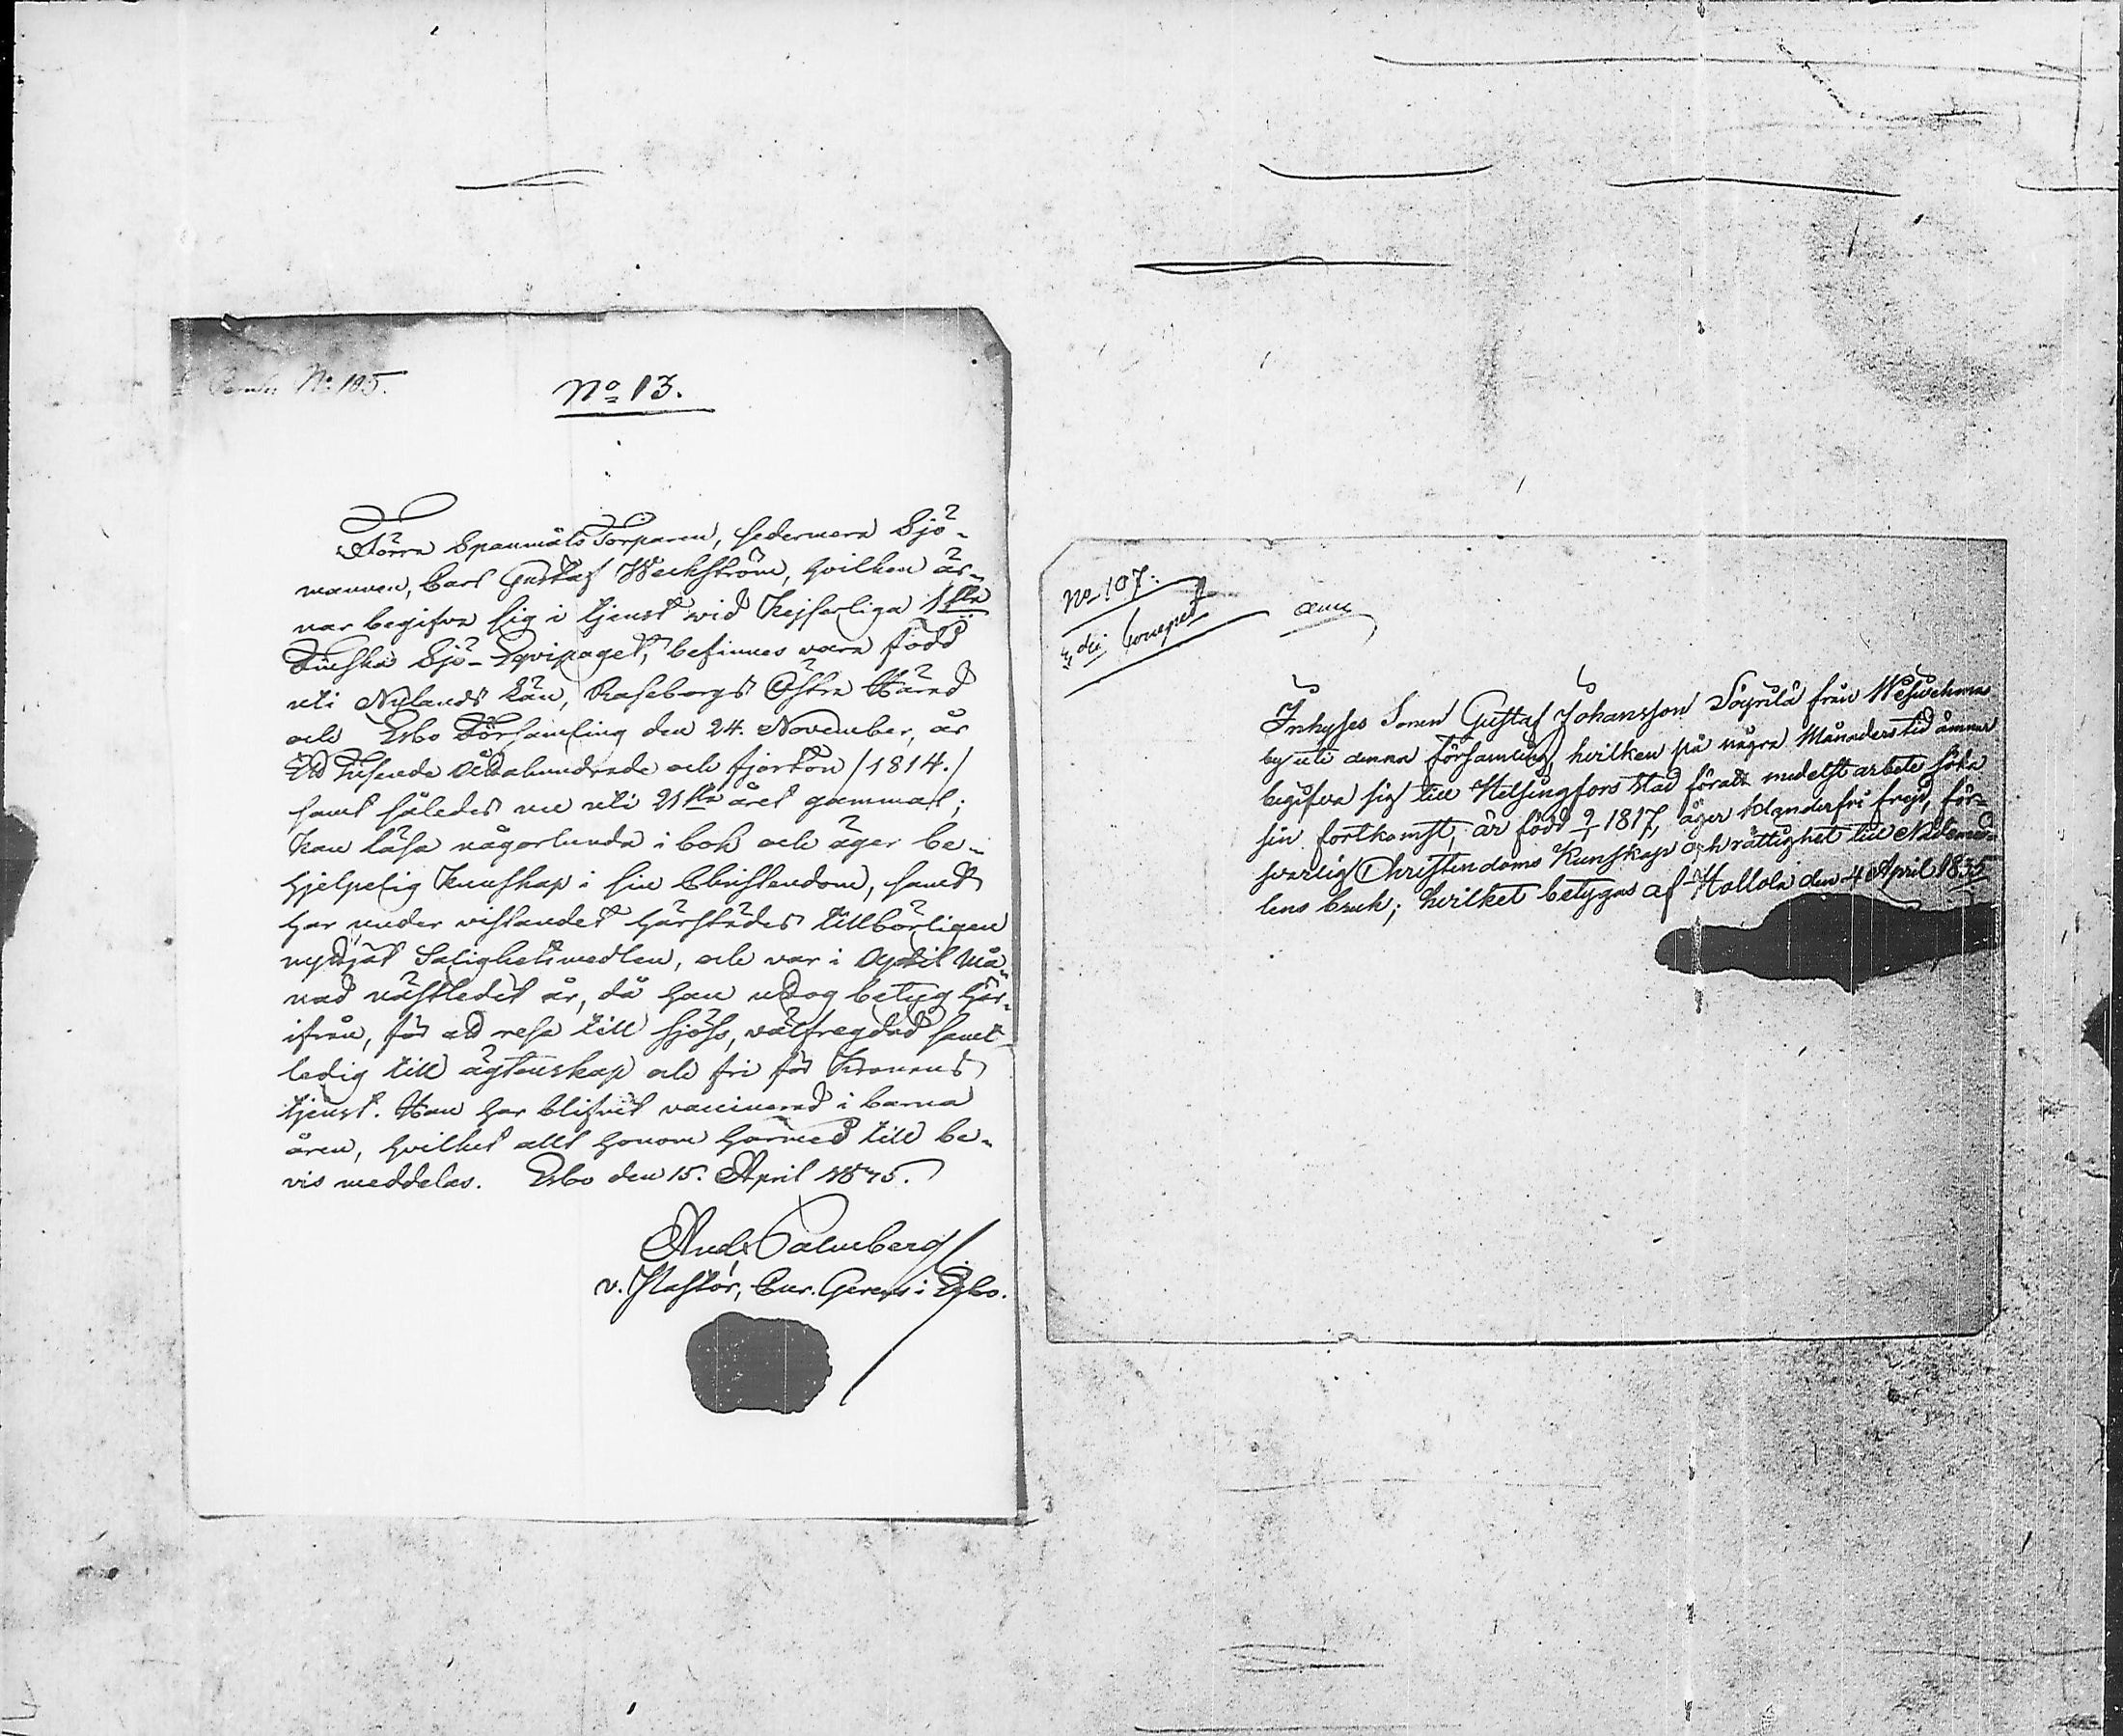 No 105.
No 13.
Förra Spanmåls Torparen, sedermera Sjö-
mannen, Carl Gustaf Weckström, hvilken är-
nar begifva sig i tjenst wid Kejserliga 1sta
Finska Sjö-Eqvipaget, befinnes vara född
uti Nylands Län, Raseborgs Östra Härad
och Esbo Församling den 24. November, år
Ett Tusende Åttahundrade och fjorton /1814./
samt således nu uti 21sta året gammal;
kan läsa någorlunda i bok och äger be-
hjelpelig kunskap i sin Christendom, samt
har under vistandet härstädes tillbörligen
nyttjat Salighetsmedlen, och var i April Må-
nad nästledit år, då han uttog betyg här-
ifrån, för att resa till sjöss, välfregdad samt
ledig till ägtenskap och fri för Kronans
tjenst. Han har blifvit vaccinerad i barna
åren, hvilket allt honom härmed till be-
vis meddelas. Esbo den 15. April 1835.
And. Palmberg
v. Pastor, Cur. Gerens i Esbo.
No 107.
Inhyses Sonen Gustaf Johansson Söyrilä från Wesivehmas
by uti denna församling, hvilken på några Månaders tid ämnar
begifva sig till Helsingfors stad för att medelst arbete söka
sin fortkomst, är född 9/1 1817, äger klanderfri frejd, för-
svarlig Christendoms Kunskap och rättighet till Nådemed-
lens bruk; hvilket betygas af Hollola den 4 April 1835